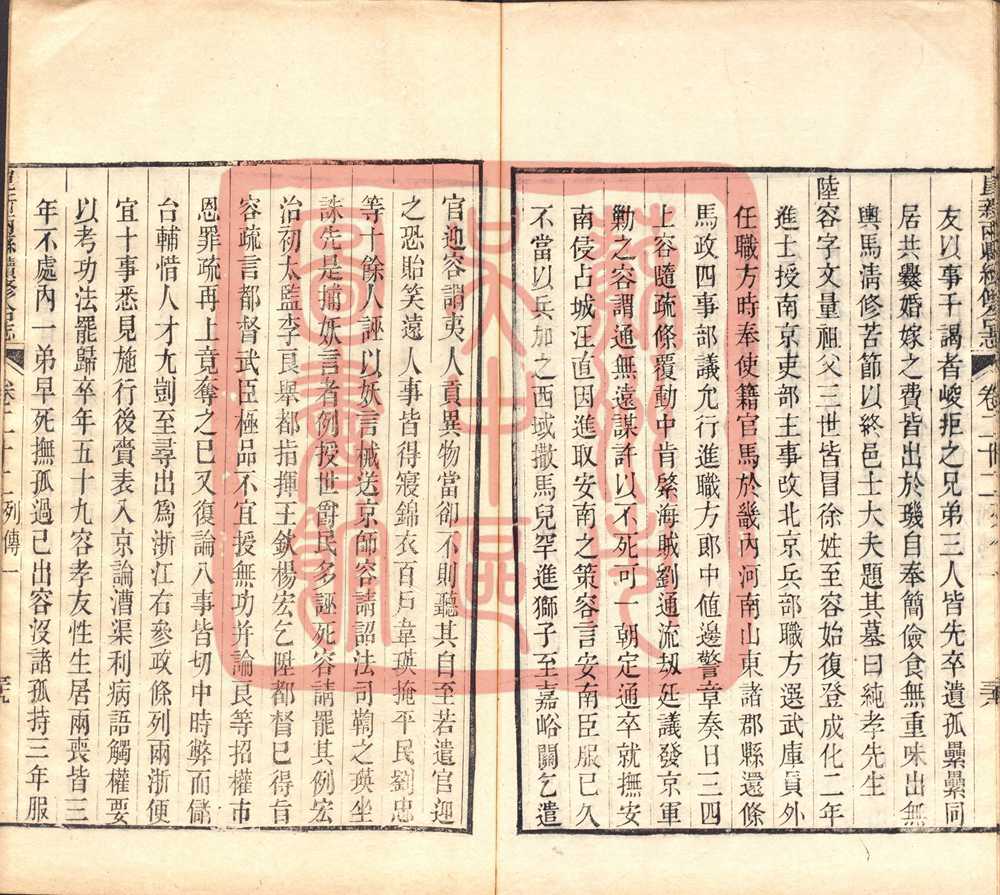 友以事干謁者峻拒之兄弟三人皆先卒遺孤纍纍同
居共爨婚嫁之費皆出於璣自奉簡儉食無重味出無
輿馬淸修苦節以終邑士大夫題其墓曰純孝先生
陸容字文量祖父三世皆冒徐姓至容始復登成化二年
進士授南京吏部主事改北京兵部職方選武庫員外
任職方時奉使籍官馬於畿內河南山東諸郡縣還條
馬政四事部議允行進職方郞中値邊警章奏日三四
上容隨疏條覆動中肯綮海賊劉通流刼廷議發京軍
勦之容謂通無遠謀許以不死可一朝定通卒就撫安
南侵占城汪直因進取安南之策容言安南臣服已久
不當以兵加之西域撒馬兒罕進獅子至嘉峪關乞遣
官迎容謂夷人貢異物當卻不則聽其自至若遣官迎
之恐貽笑遠人事皆得寢錦衣百戶韋瑛掩平民劉忠
等十餘人誣以妖言械送京師容請詔法司鞫之瑛坐
誅先是捕妖言者例授世爵民多誣死容請罷其例宏
治初太監李良舉都指揮王欽楊宏乞陞都督已得旨
容疏言都督武臣極品不宜授無功并論良等招權市
恩罪疏再上竟奪之已又復論八事皆切中時弊而儲
台輔惜人才尢剴至尋出爲浙江右參政條列兩浙便
宜十事悉見施行後賫表入京論漕渠利病語觸權要
以考功法罷歸卒年五十九容孝友性生居兩喪皆三
年不處內一弟早死撫孤過已出容沒諸孤持三年服
卷二十二 列傳一